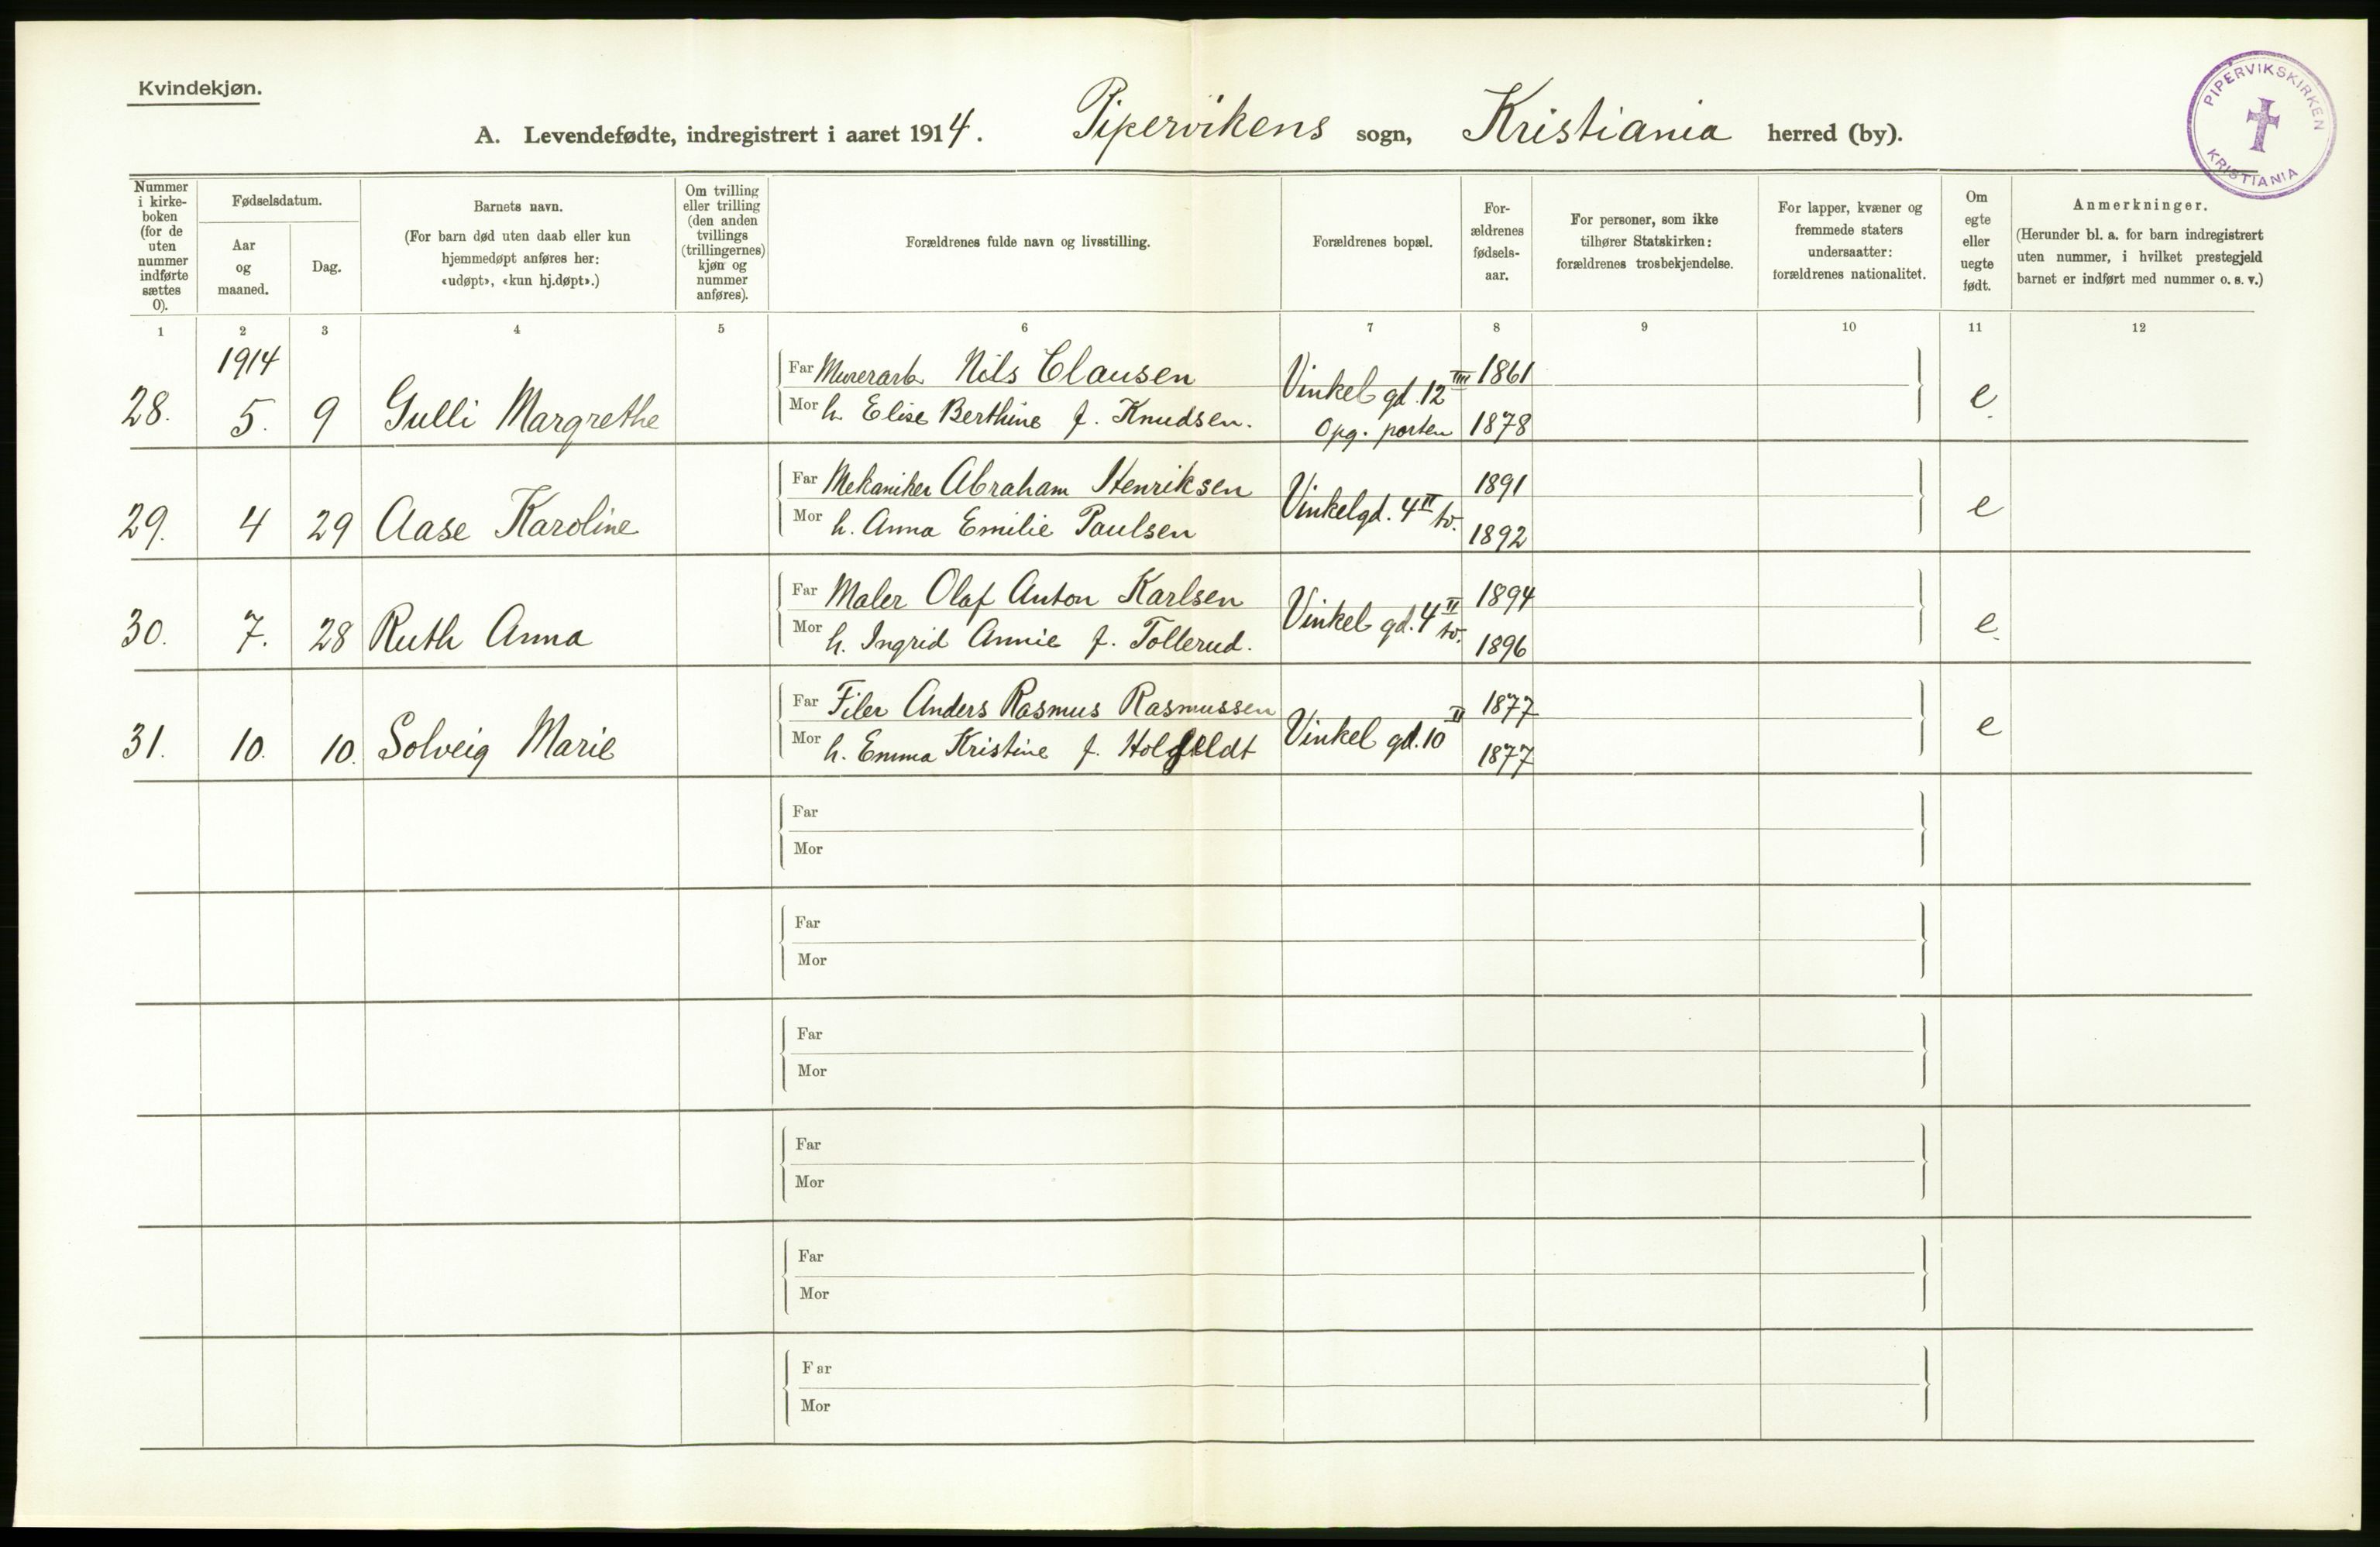 Kvindekjøn.
PIPERVIKSKIRKEN
KRISTIANIA
A. Levendefødte, indregistrert i aaret 1914. Pipervikens sogn, Kristiania herred (by).
Nummer
i kirke-
boken
(for de
uten
nummer
indførte
sættes
0).
Fødselsdatum.
Aar
og
maaned.
Dag.
Barnets navn.
(For barn død uten daab eller kun
hjemmedøpt anføres her:
«udøpt», «kun hj.døpt».)
Om tvilling
eller trilling
(den anden
tvillings
(trillingernes)
kjøn og
nummer
anføres).
Forældrenes fulde navn og livsstilling.
Forældrenes bopæl.
For-
ældrenes
fødsels-
aar.
For personer, som ikke
tilhører Statskirken:
forældrenes trosbekjendelse.
For lapper, kvæner og
fremmede staters
undersaatter:
forældrenes nationalitet.
Om
egte
eller
uegte
født.
Anmerkninger.
(Herunder bl. a. for barn indregistrert
uten nummer, i hvilket prestegjeld
barnet er indført med nummer o. s. v.)
1 2 3 4 5 6 7 8 9 10 11 12
1914
28. 5. 9 Gulli Margrethe
Far Murerarb. Nils Clausen
Mor h. Elise Berthine f. Knudsen.
Vinkel gd. 12 IIII
Opg. porten
1861
1878
e.
29. 4 29 Aase Karoline
Far Mekaniker Abraham Henriksen
Mor h. Anna Emilie Paulsen
Vinkelgd. 4 II tv.
1891
1892
e
30. 7. 28 Ruth Anna
Far Maler Olaf Anton Karlsen
Mor h. Ingrid Annie f. Tollerud.
Vinkel gd. 4 II tv.
1894
1896
e.
31. 10. 10. Solveig Marie
Far Filer Anders Rasmus Rasmussen
Mor h. Emma Kristine f.
Vinkel gd. 10 II
1877
1877
e
Far
Mor
Far
Mor
Far
Mor
Far
Mor
Far
Mor
Far
Mor